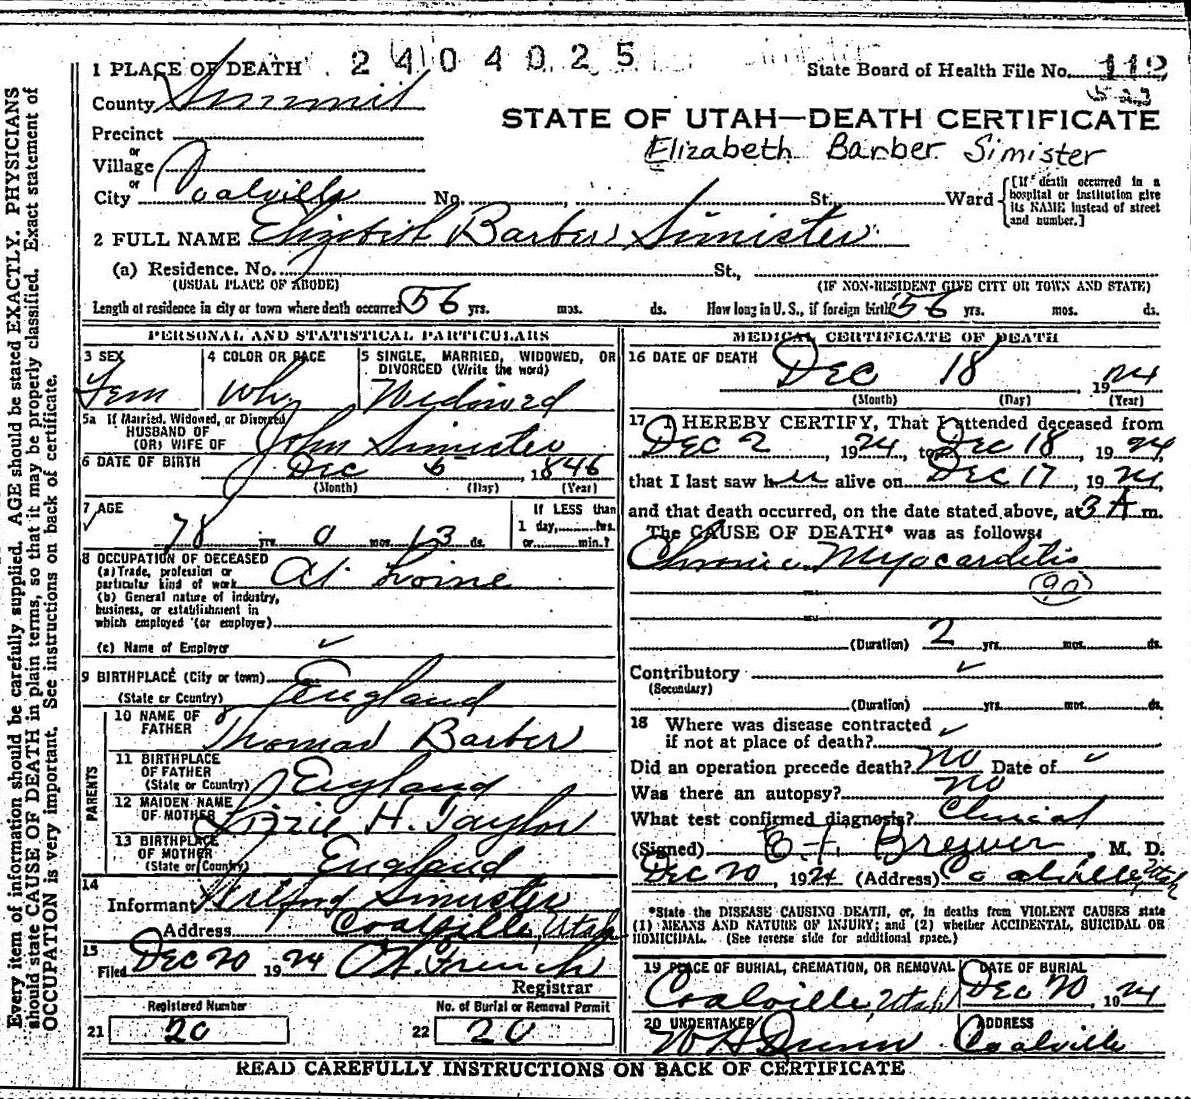 Every item of information should be carefully supplied. AGE should be stated EXACTLY. PHYSICIANS
should state CAUSE OF DEATH in plain terms, so that it may be properly classified. Exact statement of
OCCUPATION is very important. See instructions on back of certificate.
2404025
1 PLACE OF DEATH
State Board of Health File No. 112
County Summit
STATE OF UTAH—DEATH CERTIFICATE
Precinct
Elizabeth Barber Simister
or
Village
or
City Coalville No. St., Ward
[If death occurred in a
hospital or institution give
its NAME instead of street
and number.]
2 FULL NAME Elizabeth Barber Simister
(a) Residence. No. St.,
(USUAL PLACE OF ABODE) (IF NON-RESIDENT GIVE CITY OR TOWN AND STATE)
Length of residence in city or town where death occurred 56 yrs. mos. ds. How long in U. S., if foreign birth 56 yrs. mos. ds.
PERSONAL AND STATISTICAL PARTICULARS
3 SEX
Fem
4 COLOR OR RACE
Wh
5 SINGLE, MARRIED, WIDOWED, OR
DIVORCED (Write the word)
Widowed
5a If Married, Widowed, or Divorced
HUSBAND OF
(OR) WIFE OF John Simister
6 DATE OF BIRTH Dec 5, 1846
(Month) (Day) (Year)
7 AGE
78 yrs. 0 mos. 13 ds.
If LESS than
1 day, hrs.
or min.?
8 OCCUPATION OF DECEASED
(a) Trade, profession or
particular kind of work At Home
(b) General nature of industry,
business, or establishment in
which employed (or employer)
(c) Name of Employer
9 BIRTHPLACE (City or town)
(State or Country) England
PARENTS
10 NAME OF
FATHER Thomas Barber
11 BIRTHPLACE
OF FATHER
(State or Country) England
12 MAIDEN NAME
OF MOTHER Lizzie H. Taylor
13 BIRTHPLACE
OF MOTHER
(State or Country) England
14
Informant Wilford Simister
Address Coalville, Utah
15
Filed Dec 20 1924 French
Registrar
Registered Number
21 20
No. of Burial or Removal Permit
22 20
MEDICAL CERTIFICATE OF DEATH
16 DATE OF DEATH
Dec 18, 1924
(Month) (Day) (Year)
17 I HEREBY CERTIFY, That I attended deceased from
Dec 2, 1924, to Dec 18, 1924,
that I last saw her alive on Dec 17, 1924,
and that death occurred, on the date stated above, at 3 A m.
The CAUSE OF DEATH* was as follows:
Chronic Myocarditis
(90)
(Duration) 2 yrs. mos. ds.
Contributory
(Secondary)
(Duration) yrs. mos. ds.
18 Where was disease contracted
if not at place of death?
Did an operation precede death? No Date of
Was there an autopsy? No
What test confirmed diagnosis? Clinical
(Signed) Brewer, M. D.
Dec 20, 1924 (Address) Coalville, Utah
*State the DISEASE CAUSING DEATH, or, in deaths from VIOLENT CAUSES state
(1) MEANS AND NATURE OF INJURY; and (2) whether ACCIDENTAL, SUICIDAL OR
HOMICIDAL. (See reverse side for additional space.)
19 PLACE OF BURIAL, CREMATION, OR REMOVAL
Coalville, Utah
DATE OF BURIAL
Dec 20, 1924
20 UNDERTAKER
W H Dunn
ADDRESS
Coalville
READ CAREFULLY INSTRUCTIONS ON BACK OF CERTIFICATE